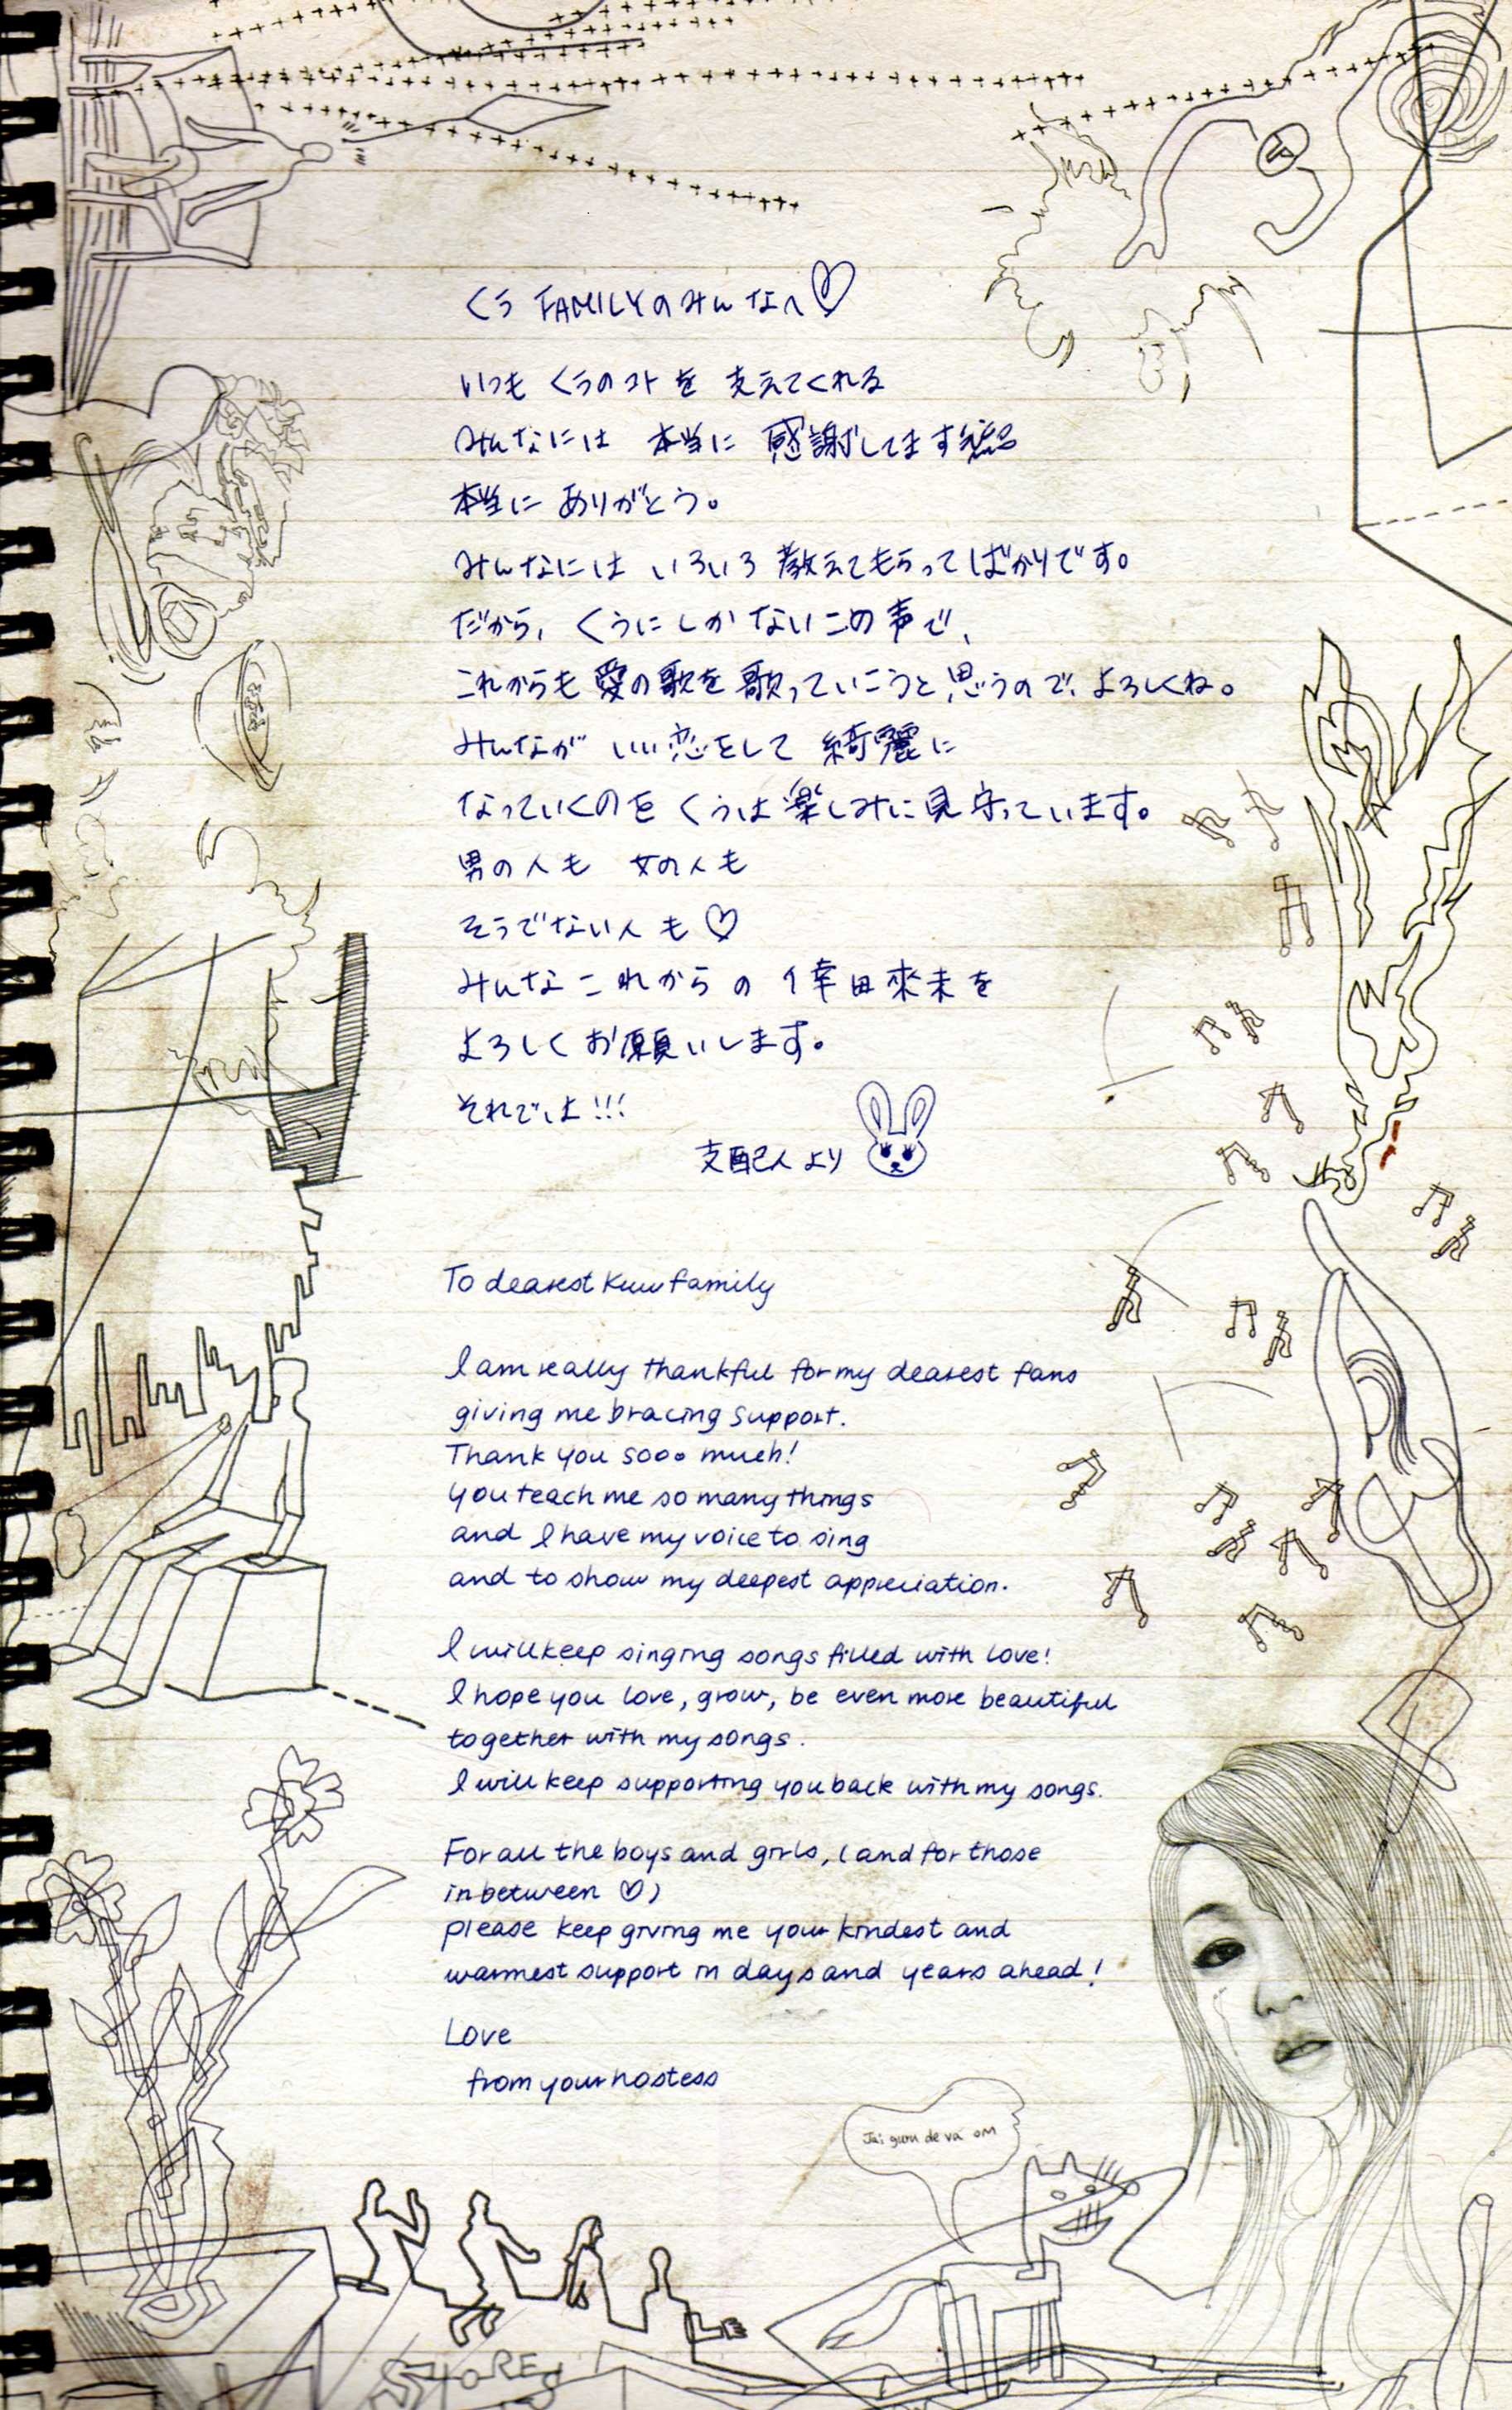 くぅ FAMILYのみんなへ♡
いつも くぅのコトを 支えてくれる
みんなには 本当に 感謝してます
本当に ありがとう。
みんなには いろいろ 教えてもらってばかりです。
だから、くぅにしか ないこの声で、
これからも 愛の歌を 歌っていこうと思うので、よろしくね。
みんなが いい恋をして 綺麗に
なっていくのを くぅは 楽しみに見守っています。
男の人も 女の人も
そうでない人も♡
みんなこれからの 倖田來未を
よろしくお願いします。
それでは!!!
支配人より
To dearest Kuu family
I am really thankful for my dearest fans
giving me bracing support.
Thank you sooo much!
You teach me so many things
and I have my voice to sing
and to show my deepest appreciation.
I will keep singing songs filled with love!
I hope you love, grow, be even more beautiful
together with my songs.
I will keep supporting you back with my songs.
For all the boys and girls, (and for those
in between ♡)
please keep giving me your kindest and
warmest support in days and years ahead!
Love
from your hostess
Jai guru de va om